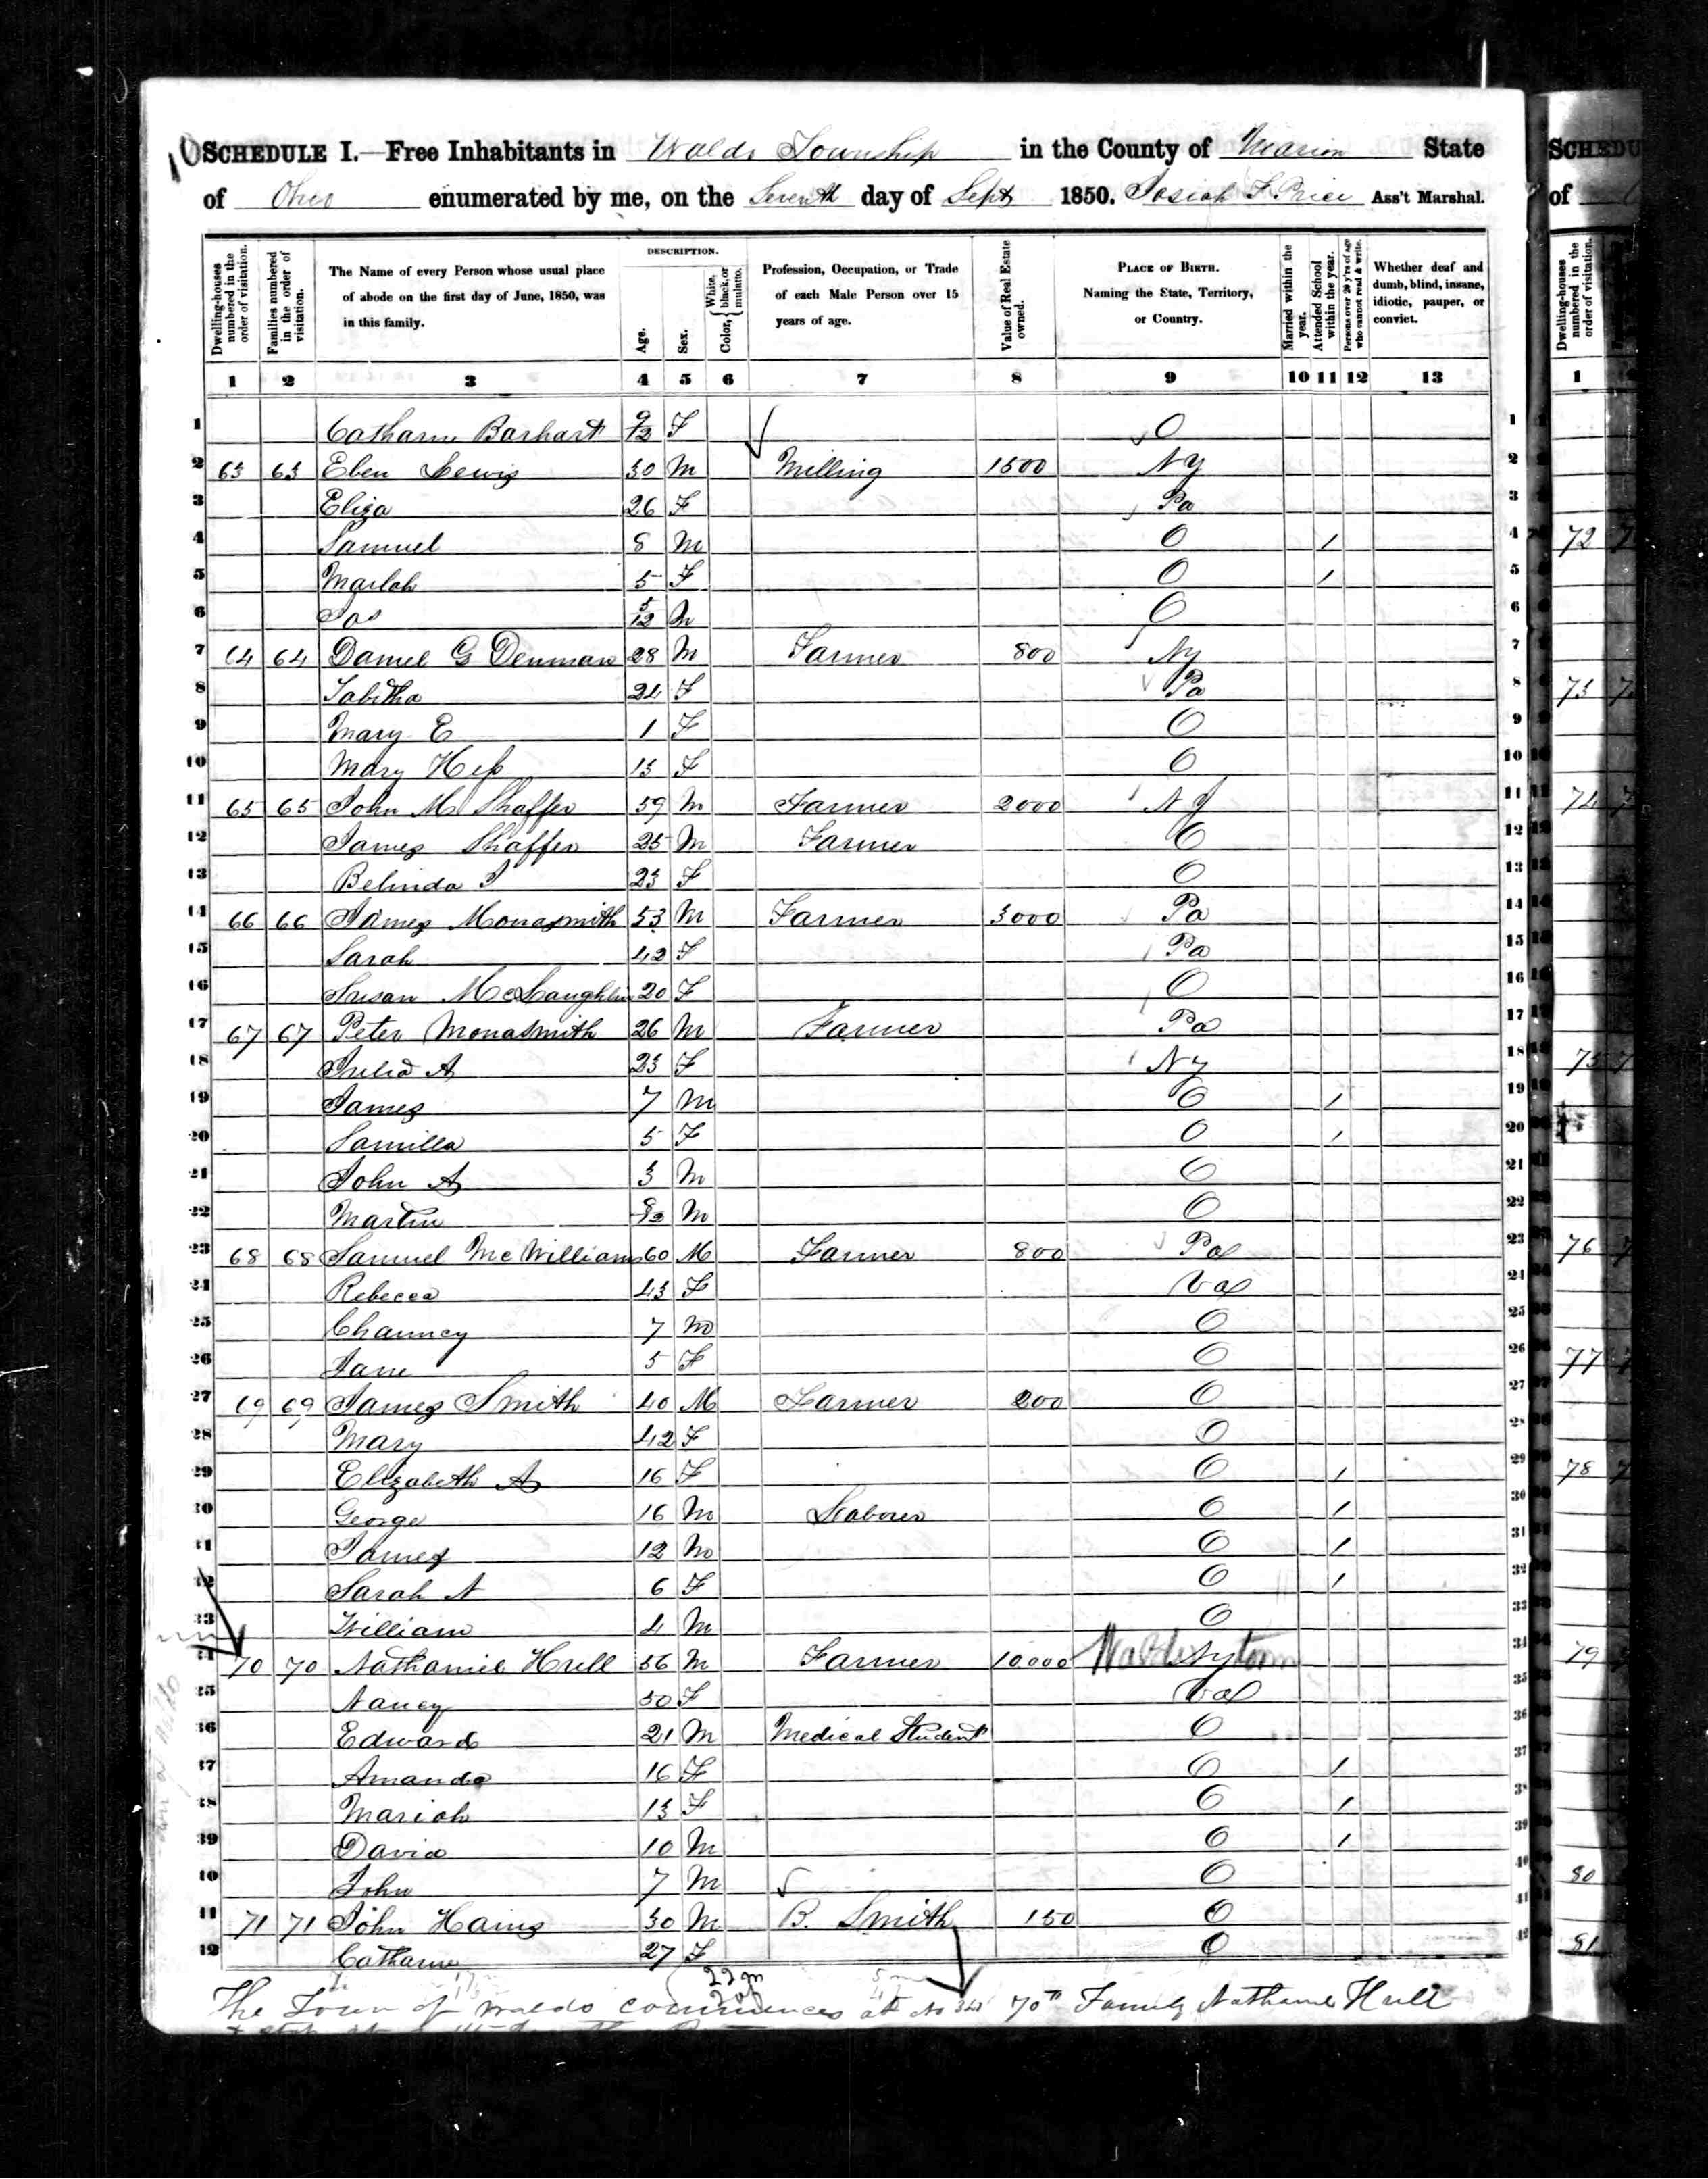 10
SCHEDULE I.—Free Inhabitants in Waldo Township in the County of Marion State
of Ohio enumerated by me, on the Seventh day of Sept 1850. Josiah F. Price Ass't Marshal.
Dwelling-houses numbered in the order of visitation.
Families numbered in the order of visitation.
The Name of every Person whose usual place of abode on the first day of June, 1850, was in this family.
DESCRIPTION.
Age.
Sex.
Color, { White, black, or mulatto.
Profession, Occupation, or Trade of each Male Person over 15 years of age.
Value of Real Estate owned.
PLACE OF BIRTH. Naming the State, Territory, or Country.
Married within the year.
Attended School within the year.
Persons over 20 y'rs of age who cannot read & write.
Whether deaf and dumb, blind, insane, idiotic, pauper, or convict.
1 2 3 4 5 6 7 8 9 10 11 12 13
1 Catharin Barhart 9/12 F O 1
2 63 63 Eben Lewis 30 M Milling 1500 NY 2
3 Eliza 26 F Pa 3
4 Samuel 8 M O / 4
5 5 F O / 5
6 Jas 5/12 M O 6
7 64 64 Daniel G Denman 28 M Farmer 800 Ny 7
8 Tabitha 24 F Pa 8
9 Mary E 1 F O 9
10 Mary Heß 13 F O 10
11 65 65 John M Shaffer 59 M Farmer 2000 NY 11
12 James Shaffer 25 M Farmer O 12
13 Belinda J 23 F O 13
14 66 66 James Monasmith 53 M Farmer 3000 Pa 14
15 Sarah 42 F Pa 15
16 Susan McLaughlin 20 F O 16
17 67 67 Peter Monasmith 26 M Farmer Pa 17
18 Julia A 23 F NY 18
19 James 7 M O / 19
20 Samilla 5 F O / 20
21 John A 3 M O 21
22 Martin M O 22
23 68 68 Samuel McWilliams 60 M Farmer 800 Pa 23
24 Rebecca 43 F Va 24
25 Chauncy 7 M O 25
26 Jane 5 F O 26
27 69 69 James Smith 40 M Farmer 200 O 27
28 Mary 42 F O 28
29 Elizabeth A 16 F O / 29
30 George 16 M Laborer O / 30
31 James 12 M O / 31
32 Sarah A 6 F O / 32
33 William 4 M O 33
34 70 70 Nathaniel Hull 56 M Farmer 10000 Ny 34
35 Nancy 50 F Va 35
36 Edward 21 M Medical Student O 36
37 Amanda 16 F O / 37
38 Mariah 13 F O / 38
39 David 10 M O / 39
40 John 7 M O 40
41 71 71 John Hains 30 M B. Smith 150 O 41
42 Catharine 27 F O 42
22 m
20 f
The Town of Waldo commences at No 34 70th Family Nathaniel Hull
SCHEDU
of
Dwelling-houses numbered in the order of visitation.
1
72
73
74
75
76
77
78
79
80
81